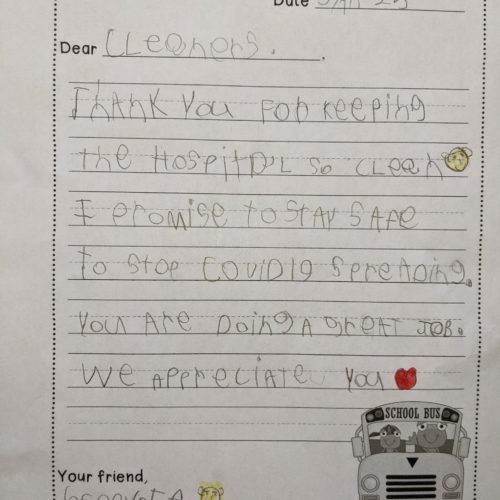 Date Jan 25
Dear Cleaners.
Thank you for keeping
the Hospital so clean
I promise to stay safe
to stop covid19 spreading.
you are Doing a great job.
we appreciate you
SCHOOL BUS
Your friend,